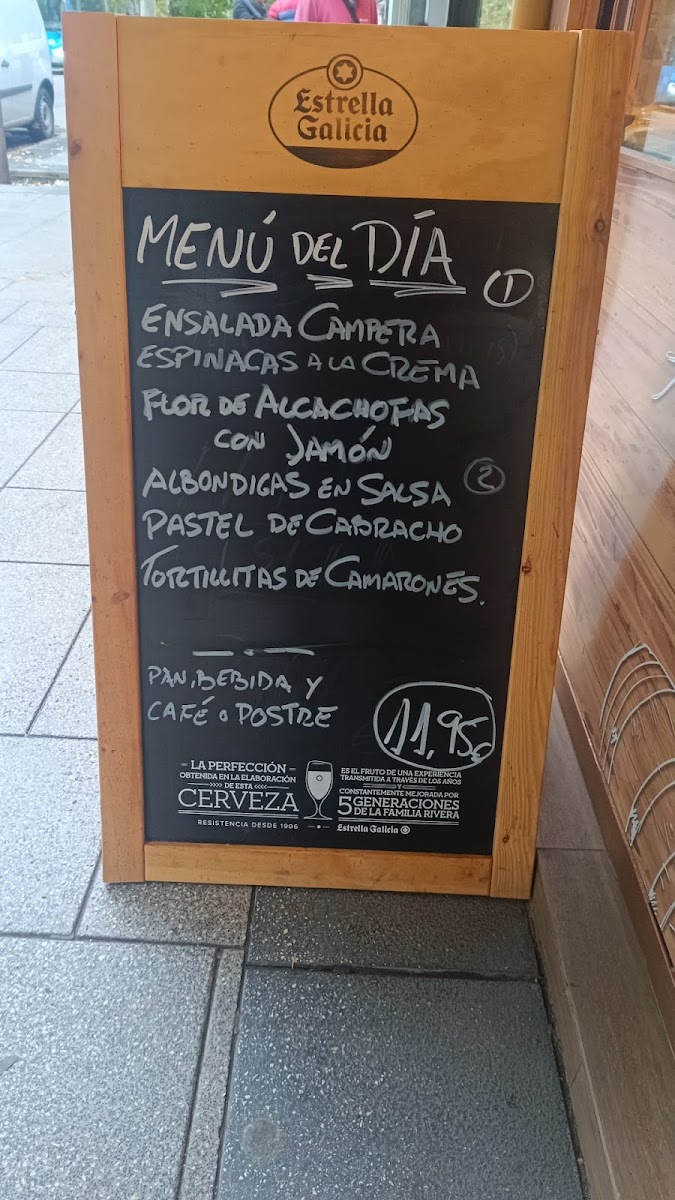 Estrella
Galicia
MENÚ DEL DÍA
1
ENSALADA CAMPERA
ESPINACAS A LA CREMA
FLOR DE ALCACHOFAS
CON JAMÓN
ALBONDIGAS EN SALSA 2
PASTEL DE CABRACHO
TORTILLITAS DE CAMARONES.
PAN, BEBIDA Y
CAFÉ O POSTRE
11,95€
– LA PERFECCIÓN –
OBTENIDA EN LA ELABORACIÓN
>>>> DE ESTA <<<<
CERVEZA
RESISTENCIA DESDE 1906
ES EL FRUTO DE UNA EXPERIENCIA
TRANSMITIDA A TRAVÉS DE LOS AÑOS
Y
CONSTANTEMENTE MEJORADA POR
5 GENERACIONES
DE LA FAMILIA RIVERA
Estrella Galicia